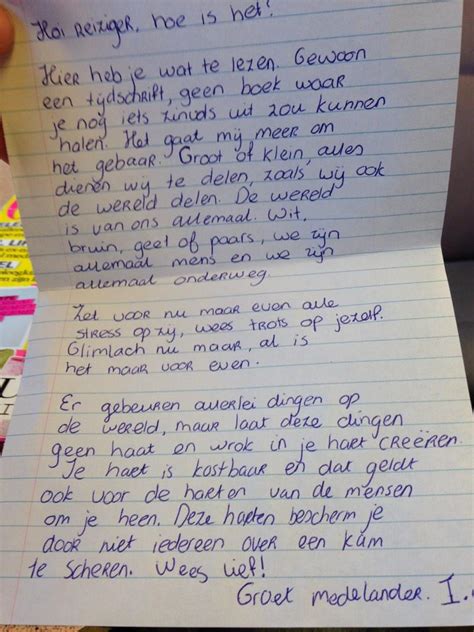 Hoi reiziger, hoe is het?
Hier heb je wat te lezen. Gewoon
een tijdschrift, geen boek waar
je nog iets zinvols uit zou kunnen
halen. Het gaat mij meer om
het gebaar. Groot of klein, alles
dienen wij te delen, zoals wij ook
de wereld delen. De wereld
is van ons allemaal. Wit,
bruin, geel of paars, we zijn
allemaal mens en we zijn
allemaal onderweg.
Zet voor nu maar even alle
stress opzij, wees trots op jezelf.
Glimlach nu maar, al is
het maar voor even.
Er gebeuren allerlei dingen op
de wereld, maar laat deze dingen
geen haat en wrok in je hart creëren.
Je hart is kostbaar en dat geldt
ook voor de harten van de mensen
om je heen. Deze harten bescherm je
door niet iedereen over een kam
te scheren. Wees lief!
Groet medelander. I.